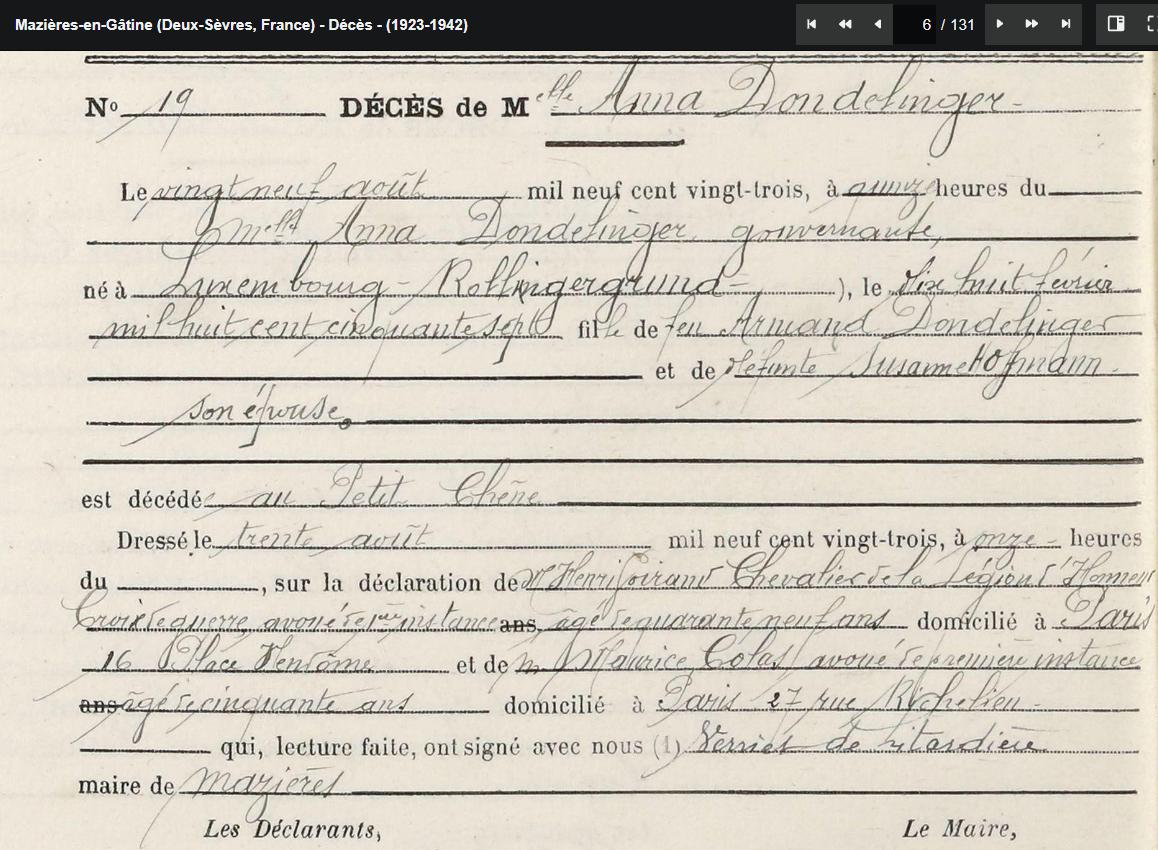 Mazières-en-Gâtine (Deux-Sèvres, France) - Décès - (1923-1942)
6 / 131
No 19 DÉCÈS de Melle Anna Dondelinger
Le vingt neuf août mil neuf cent vingt-trois, à quinze heures du
Melle Anna Dondelinger, gouvernante,
né à Luxembourg - Rollingergrund - ), le dix huit février
mil huit cent cinquante sept fille de feu Armand Dondelinger
et de défunte Susanne Hofmann
son épouse.
est décédée au Petit Chêne
Dressé le trente août mil neuf cent vingt-trois, à onze heures
du , sur la déclaration de M Henri Goirand Chevalier de la Légion d'Honneur
Croix de guerre, avoué de 1ère instance ans âgé de quarante neuf ans domicilié à Paris
16 Place Vendôme et de M Maurice Colas, avoué de première instance
ans âgé de cinquante ans domicilié à Paris 27 rue Richelieu
qui, lecture faite, ont signé avec nous (1) de
maire de Mazières
Les Déclarants, Le Maire,